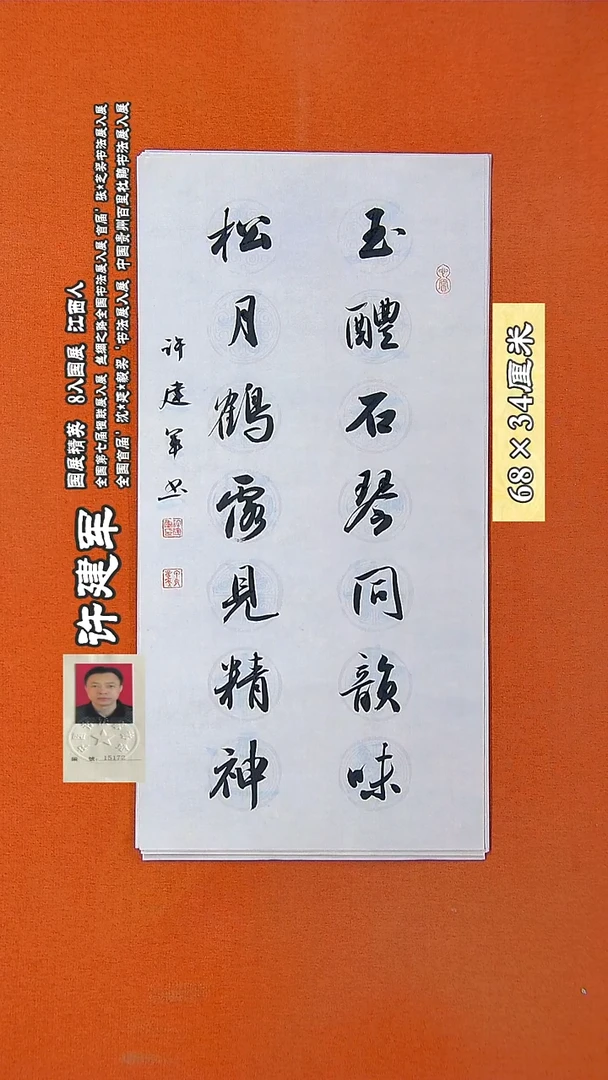 玉醴石琴同韻味
松月鶴露見精神
许建军书
68×34厘米
许建军
国展精英 8入国展 江西人
全国第七届楹联展入展 丝绸之路全国书法展入展 首届'张★芝奖书法展入展
全国首届'沈★延★毅奖'书法展入展 中国贵州百里杜鹃书法展入展
编 号: 15172